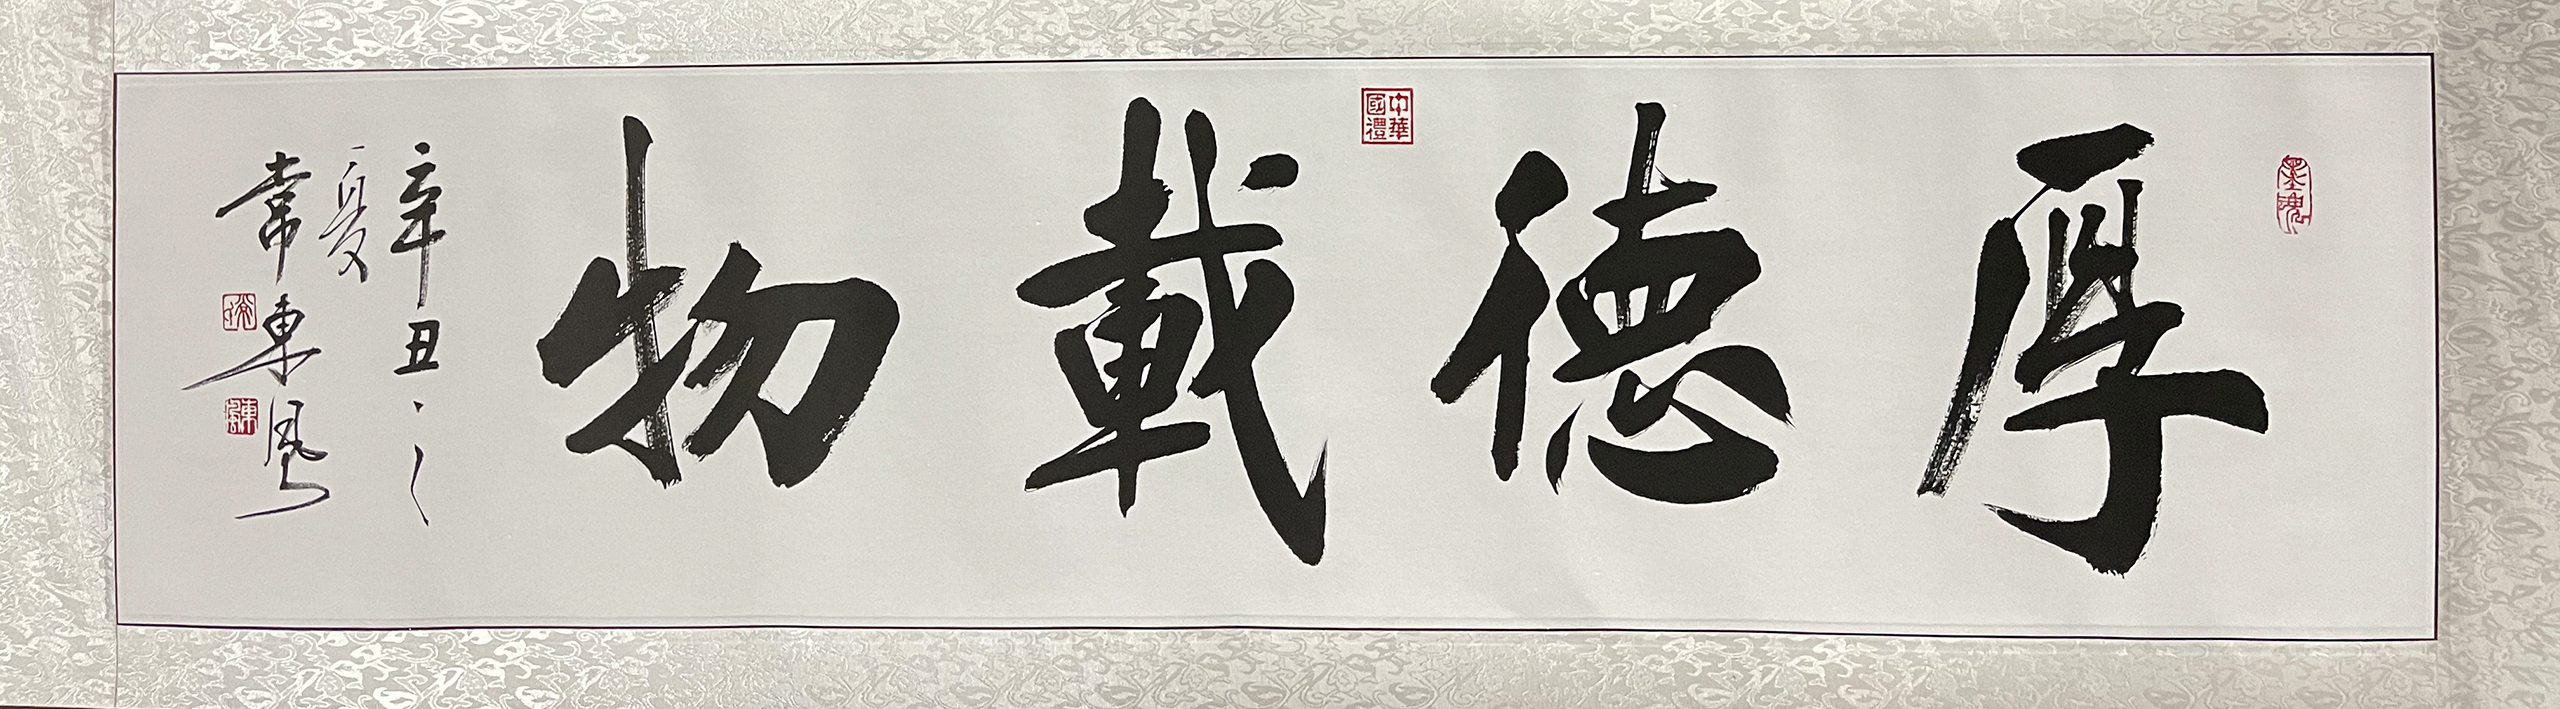 厚德載物
辛丑之
夏
常東風
墨魂
中華國禮